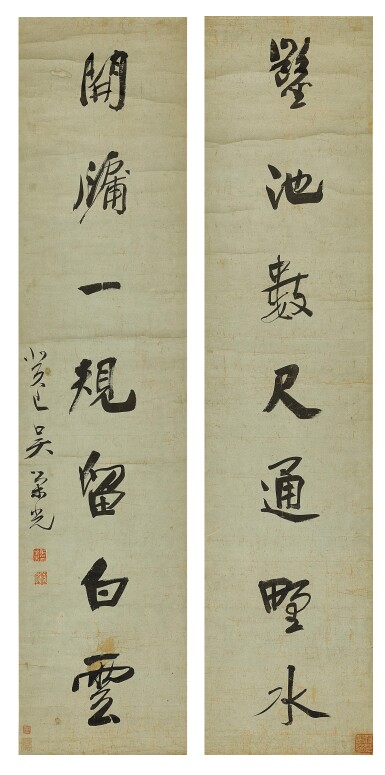 鑿池數尺通野水
開牖一規留白雲
癸巳吳榮光